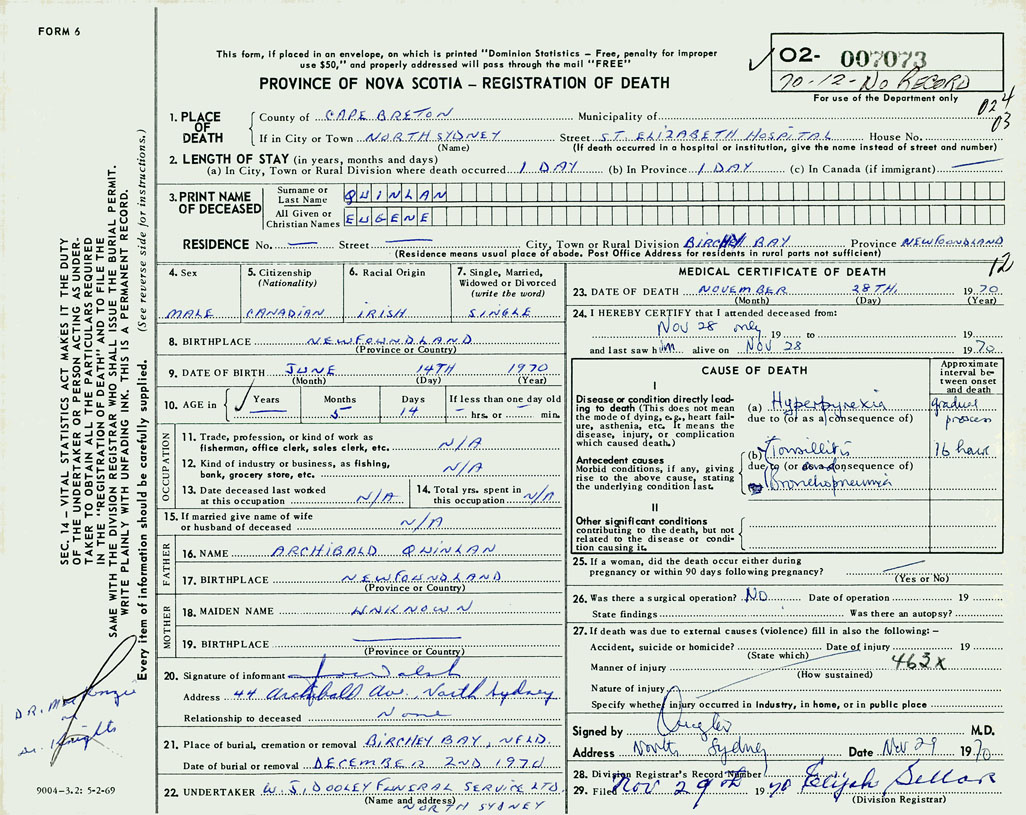 FORM 6
This form, if placed in an envelope, on which is printed "Dominion Statistics – Free, penalty for improper
use $50," and properly addressed will pass through the mail "FREE"
PROVINCE OF NOVA SCOTIA – REGISTRATION OF DEATH
O2- 007073
70-12-No RECORD
For use of the Department only
024
03
1. PLACE OF DEATH
County of CAPE BRETON Municipality of
If in City or Town NORTH SYDNEY Street ST. ELIZABETH HOSPITAL House No.
(Name) (If death occurred in a hospital or institution, give the name instead of street and number)
2. LENGTH OF STAY (in years, months and days)
(a) In City, Town or Rural Division where death occurred 1 DAY (b) In Province 1 DAY (c) In Canada (if immigrant) —
3. PRINT NAME OF DECEASED
Surname or Last Name QUINLAN
All Given or Christian Names EUGENE
RESIDENCE No. — Street — City, Town or Rural Division BIRCHY BAY Province NEWFOUNDLAND
(Residence means usual place of abode. Post Office Address for residents in rural parts not sufficient)
12
4. Sex
MALE
5. Citizenship
(Nationality)
CANADIAN
6. Racial Origin
IRISH
7. Single, Married,
Widowed or Divorced
(write the word)
SINGLE
8. BIRTHPLACE NEWFOUNDLAND
(Province or Country)
9. DATE OF BIRTH JUNE 14TH 1970
(Month) (Day) (Year)
10. AGE in Years — Months 5 Days 14 If less than one day old
— hrs. or — min.
OCCUPATION
11. Trade, profession, or kind of work as
fisherman, office clerk, sales clerk, etc. N/A
12. Kind of industry or business, as fishing,
bank, grocery store, etc. N/A
13. Date deceased last worked
at this occupation N/A
14. Total yrs. spent in
this occupation N/A
15. If married give name of wife
or husband of deceased N/A
FATHER
16. NAME ARCHIBALD QUINLAN
17. BIRTHPLACE NEWFOUNDLAND
MOTHER
18. MAIDEN NAME UNKNOWN
19. BIRTHPLACE —
(Province or Country)
20. Signature of informant
Address 44 Archibald Ave, North Sydney
Relationship to deceased None
21. Place of burial, cremation or removal BIRCHEY BAY, NFLD.
Date of burial or removal DECEMBER 2ND 1970
22. UNDERTAKER W. J. DOOLEY FUNERAL SERVICE LTD.
(Name and address) NORTH SYDNEY
MEDICAL CERTIFICATE OF DEATH
23. DATE OF DEATH NOVEMBER 28TH. 1970
(Month) (Day) (Year)
24. I HEREBY CERTIFY that I attended deceased from:
Nov 28 only 19 to 19
and last saw him alive on Nov 28 1970
CAUSE OF DEATH
Approximate
interval be-
tween onset
and death
I
Disease or condition directly lead-
ing to death (This does not
mean the mode of dying, e.g., heart fail-
ure, asthenia, etc. It means the
disease, injury, or complication
which caused death.)
(a) Hyperpyrexia gradual process
due to (or as a consequence of)
Antecedent causes
Morbid conditions, if any, giving
rise to the above cause, stating
the underlying condition last.
(b) Tonsillitis 16 hour
due to (or as a consequence of)
Bronchopneumia
II
Other significant conditions
contributing to the death, but not
related to the disease or condi-
tion causing it.
25. If a woman, did the death occur either during
pregnancy or within 90 days following pregnancy? —
(Yes or No)
26. Was there a surgical operation? NO Date of operation 19
State findings Was there an autopsy?
27. If death was due to external causes (violence) fill in also the following: –
Accident, suicide or homicide? Date of injury 19
(State which)
Manner of injury 463x
(How sustained)
Nature of injury
Specify whether injury occurred in Industry, in home, or in public place
Signed by M.D.
Address North Sydney Date Nov 29 1970
28. Division Registrar's Record Number
29. Filed Nov 29th 1970 Elijah Sellars
(Division Registrar)
SEC. 14 – VITAL STATISTICS ACT MAKES IT THE DUTY
OF THE UNDERTAKER OR PERSON ACTING AS UNDER-
TAKER TO OBTAIN ALL THE PARTICULARS REQUIRED
IN THE "REGISTRATION OF DEATH" AND TO FILE THE
SAME WITH THE DIVISION REGISTRAR WHO SHALL ISSUE THE BURIAL PERMIT.
WRITE PLAINLY WITH UNFADING INK. THIS IS A PERMANENT RECORD.
Every item of information should be carefully supplied. (See reverse side for instructions.)
DR. MacKenzie
or
Dr. Knights
9004-3.2: 5-2-69